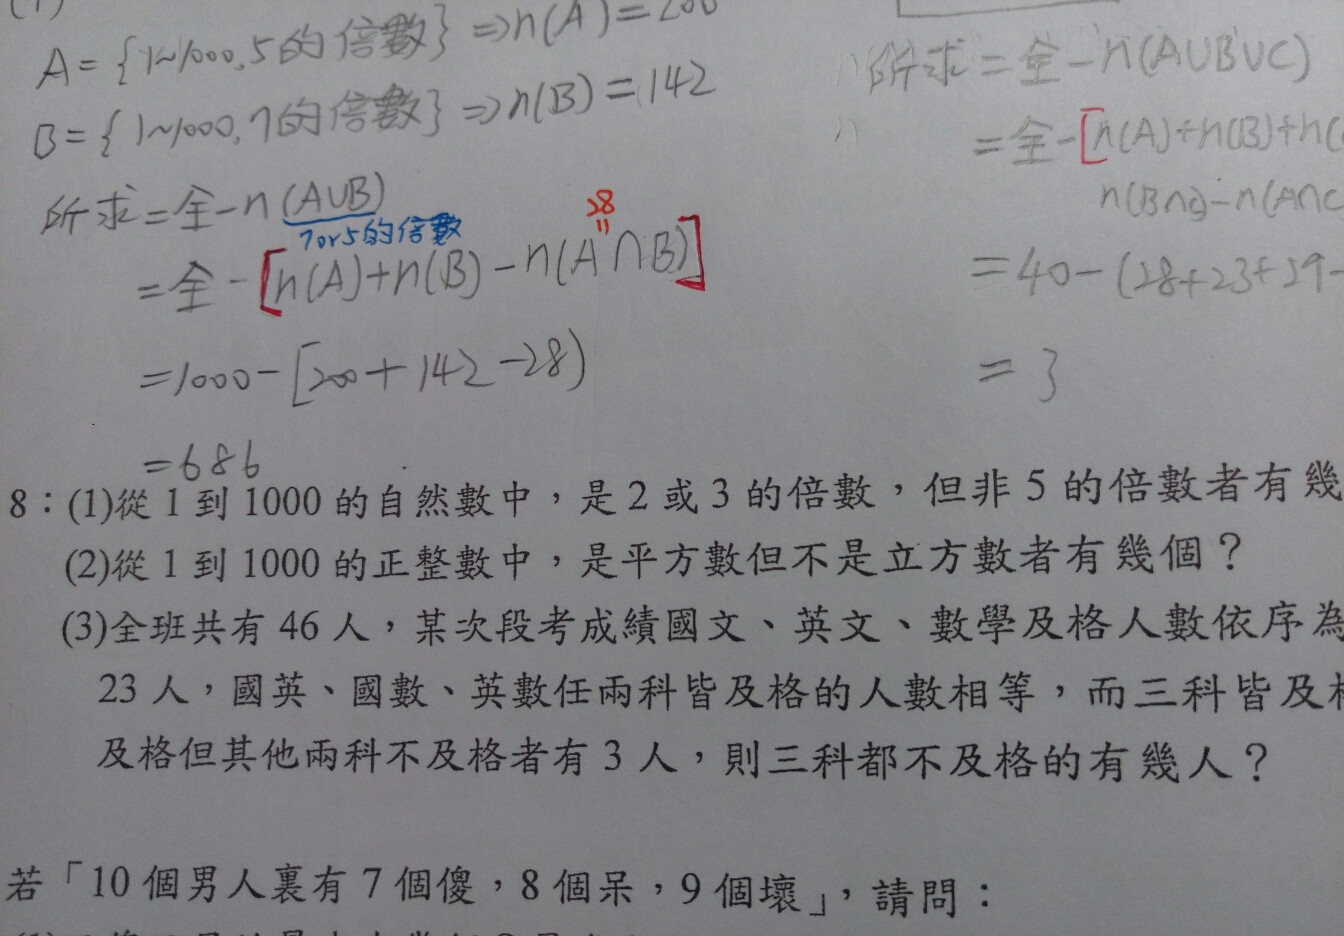 (1)
A={1~1000,5的倍數}⇒n(A)=200
B={1~1000,7的倍數}⇒n(B)=142
所求=全-n(A∪B)
7or5的倍數
28
=全-[n(A)+n(B)-n(A∩B)]
=1000-[200+142-28)
=686
所求=全-n(A∪B∪C)
=全-[n(A)+n(B)+n(
n(B∩
)-n(A∩C
=40-(28+23+29-
=3
8:(1)從 1 到 1000 的自然數中,是 2 或 3 的倍數,但非 5 的倍數者有幾
(2)從 1 到 1000 的正整數中,是平方數但不是立方數者有幾個?
(3)全班共有 46 人,某次段考成績國文、英文、數學及格人數依序為
23 人,國英、國數、英數任兩科皆及格的人數相等,而三科皆及格
及格但其他兩科不及格者有 3 人,則三科都不及格的有幾人?
若「10 個男人裏有 7 個傻,8 個呆,9 個壞」,請問: